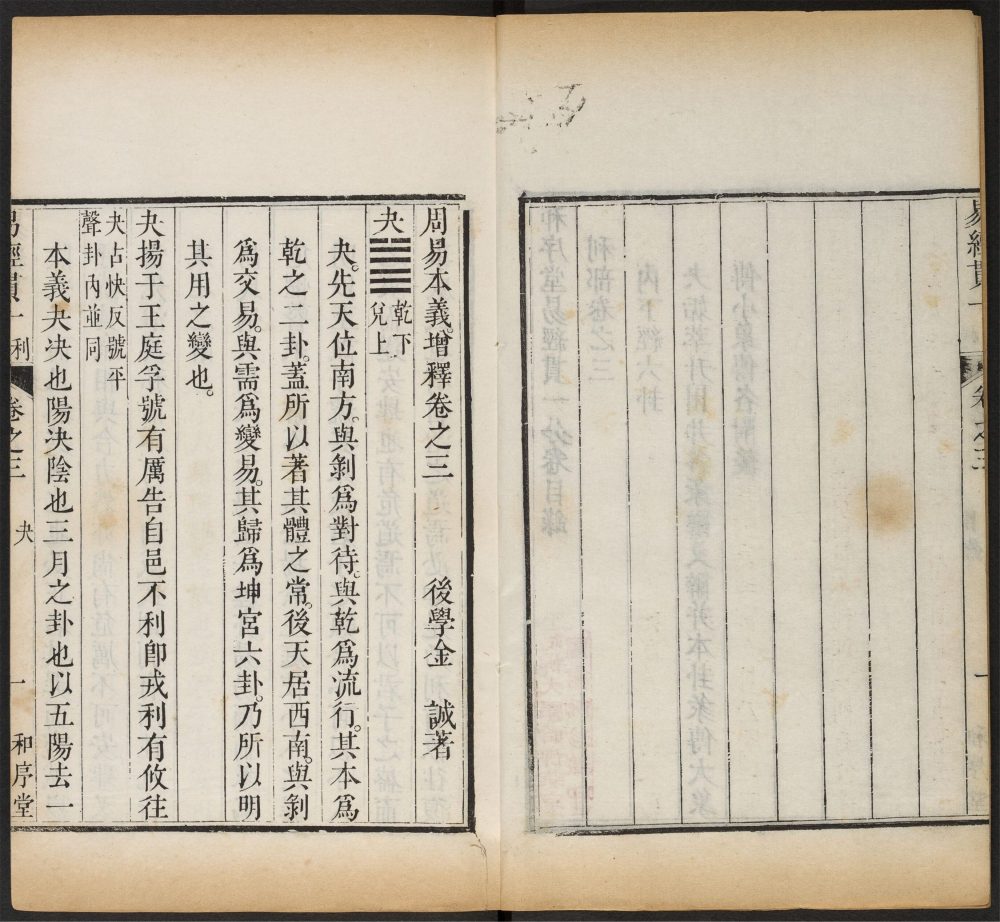 易經貫一
卷之三
一
周易本義增釋卷之三 後學金 誠著
夬 乾下
兌上
夬。先天位南方。與剝爲對待。與乾爲流行。其本爲
乾之二卦。蓋所以著其體之常。後天居西南。與剝
爲交易。與需爲變易。其歸爲坤宮六卦。乃所以明
其用之變也。
夬揚于王庭孚號有厲告自邑不利卽戎利有攸往
夬占快反號平
聲卦內並同
本義夬決也陽決陰也三月之卦也以五陽去一
易經貫一 利 卷之三 夬 一 和序堂